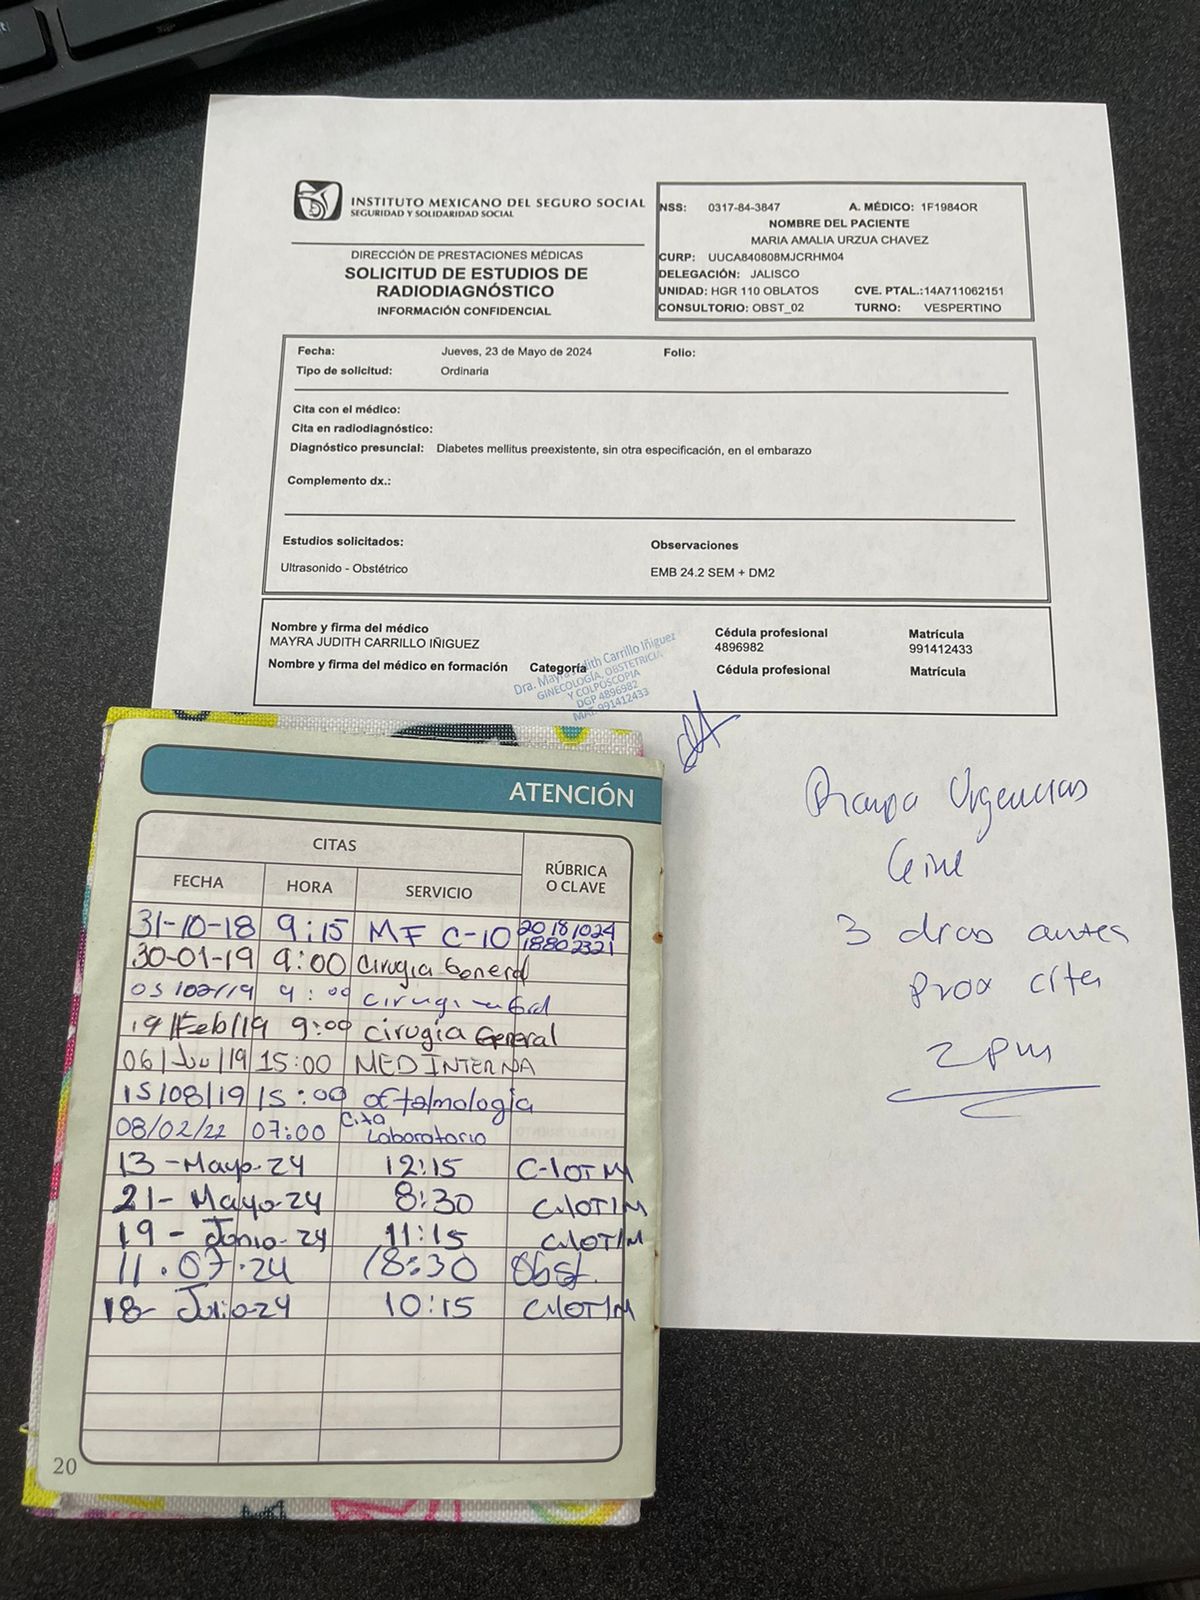 INSTITUTO MEXICANO DEL SEGURO SOCIAL
SEGURIDAD Y SOLIDARIDAD SOCIAL
DIRECCIÓN DE PRESTACIONES MÉDICAS
SOLICITUD DE ESTUDIOS DE
RADIODIAGNÓSTICO
INFORMACIÓN CONFIDENCIAL
NSS: 0317-84-3847 A. MÉDICO: 1F1984OR
NOMBRE DEL PACIENTE
MARIA AMALIA URZUA CHAVEZ
CURP: UUCA840808MJCRHM04
DELEGACIÓN: JALISCO
UNIDAD: HGR 110 OBLATOS CVE. PTAL.:14A711062151
CONSULTORIO: OBST_02 TURNO: VESPERTINO
Fecha: Jueves, 23 de Mayo de 2024 Folio:
Tipo de solicitud: Ordinaria
Cita con el médico:
Cita en radiodiagnóstico:
Diagnóstico presuncial: Diabetes mellitus preexistente, sin otra especificación, en el embarazo
Complemento dx.:
Estudios solicitados: Observaciones
Ultrasonido - Obstétrico EMB 24.2 SEM + DM2
Nombre y firma del médico Cédula profesional Matrícula
MAYRA JUDITH CARRILLO IÑIGUEZ 4896982 991412433
Nombre y firma del médico en formación Categoría Cédula profesional Matrícula
Dra. Mayra Judith Carrillo Iñiguez
GINECOLOGÍA, OBSTETRICIA
Y COLPOSCOPIA
DGP 4896982
MAT. 991412433
Urgencias
3 dias antes
prox cita
2 pm
ATENCIÓN
CITAS
FECHA HORA SERVICIO RÚBRICA O CLAVE
31-10-18 9:15 MF C-10 20181024
18802321
30-01-19 9:00 Cirugia General
05/02/19 9:00 cirugia
19/Feb/19 9:00 cirugia General
06/Ju/19 15:00 MED INTERNA
15/08/19 15:00 oftalmologia
08/02/22 07:00 Cita
Laboratorio
13-Mayo-24 12:15
21-Mayo-24 8:30
19-Junio-24 11:15
11.07.24 18:30 Obst.
18-Julio-24 10:15
20